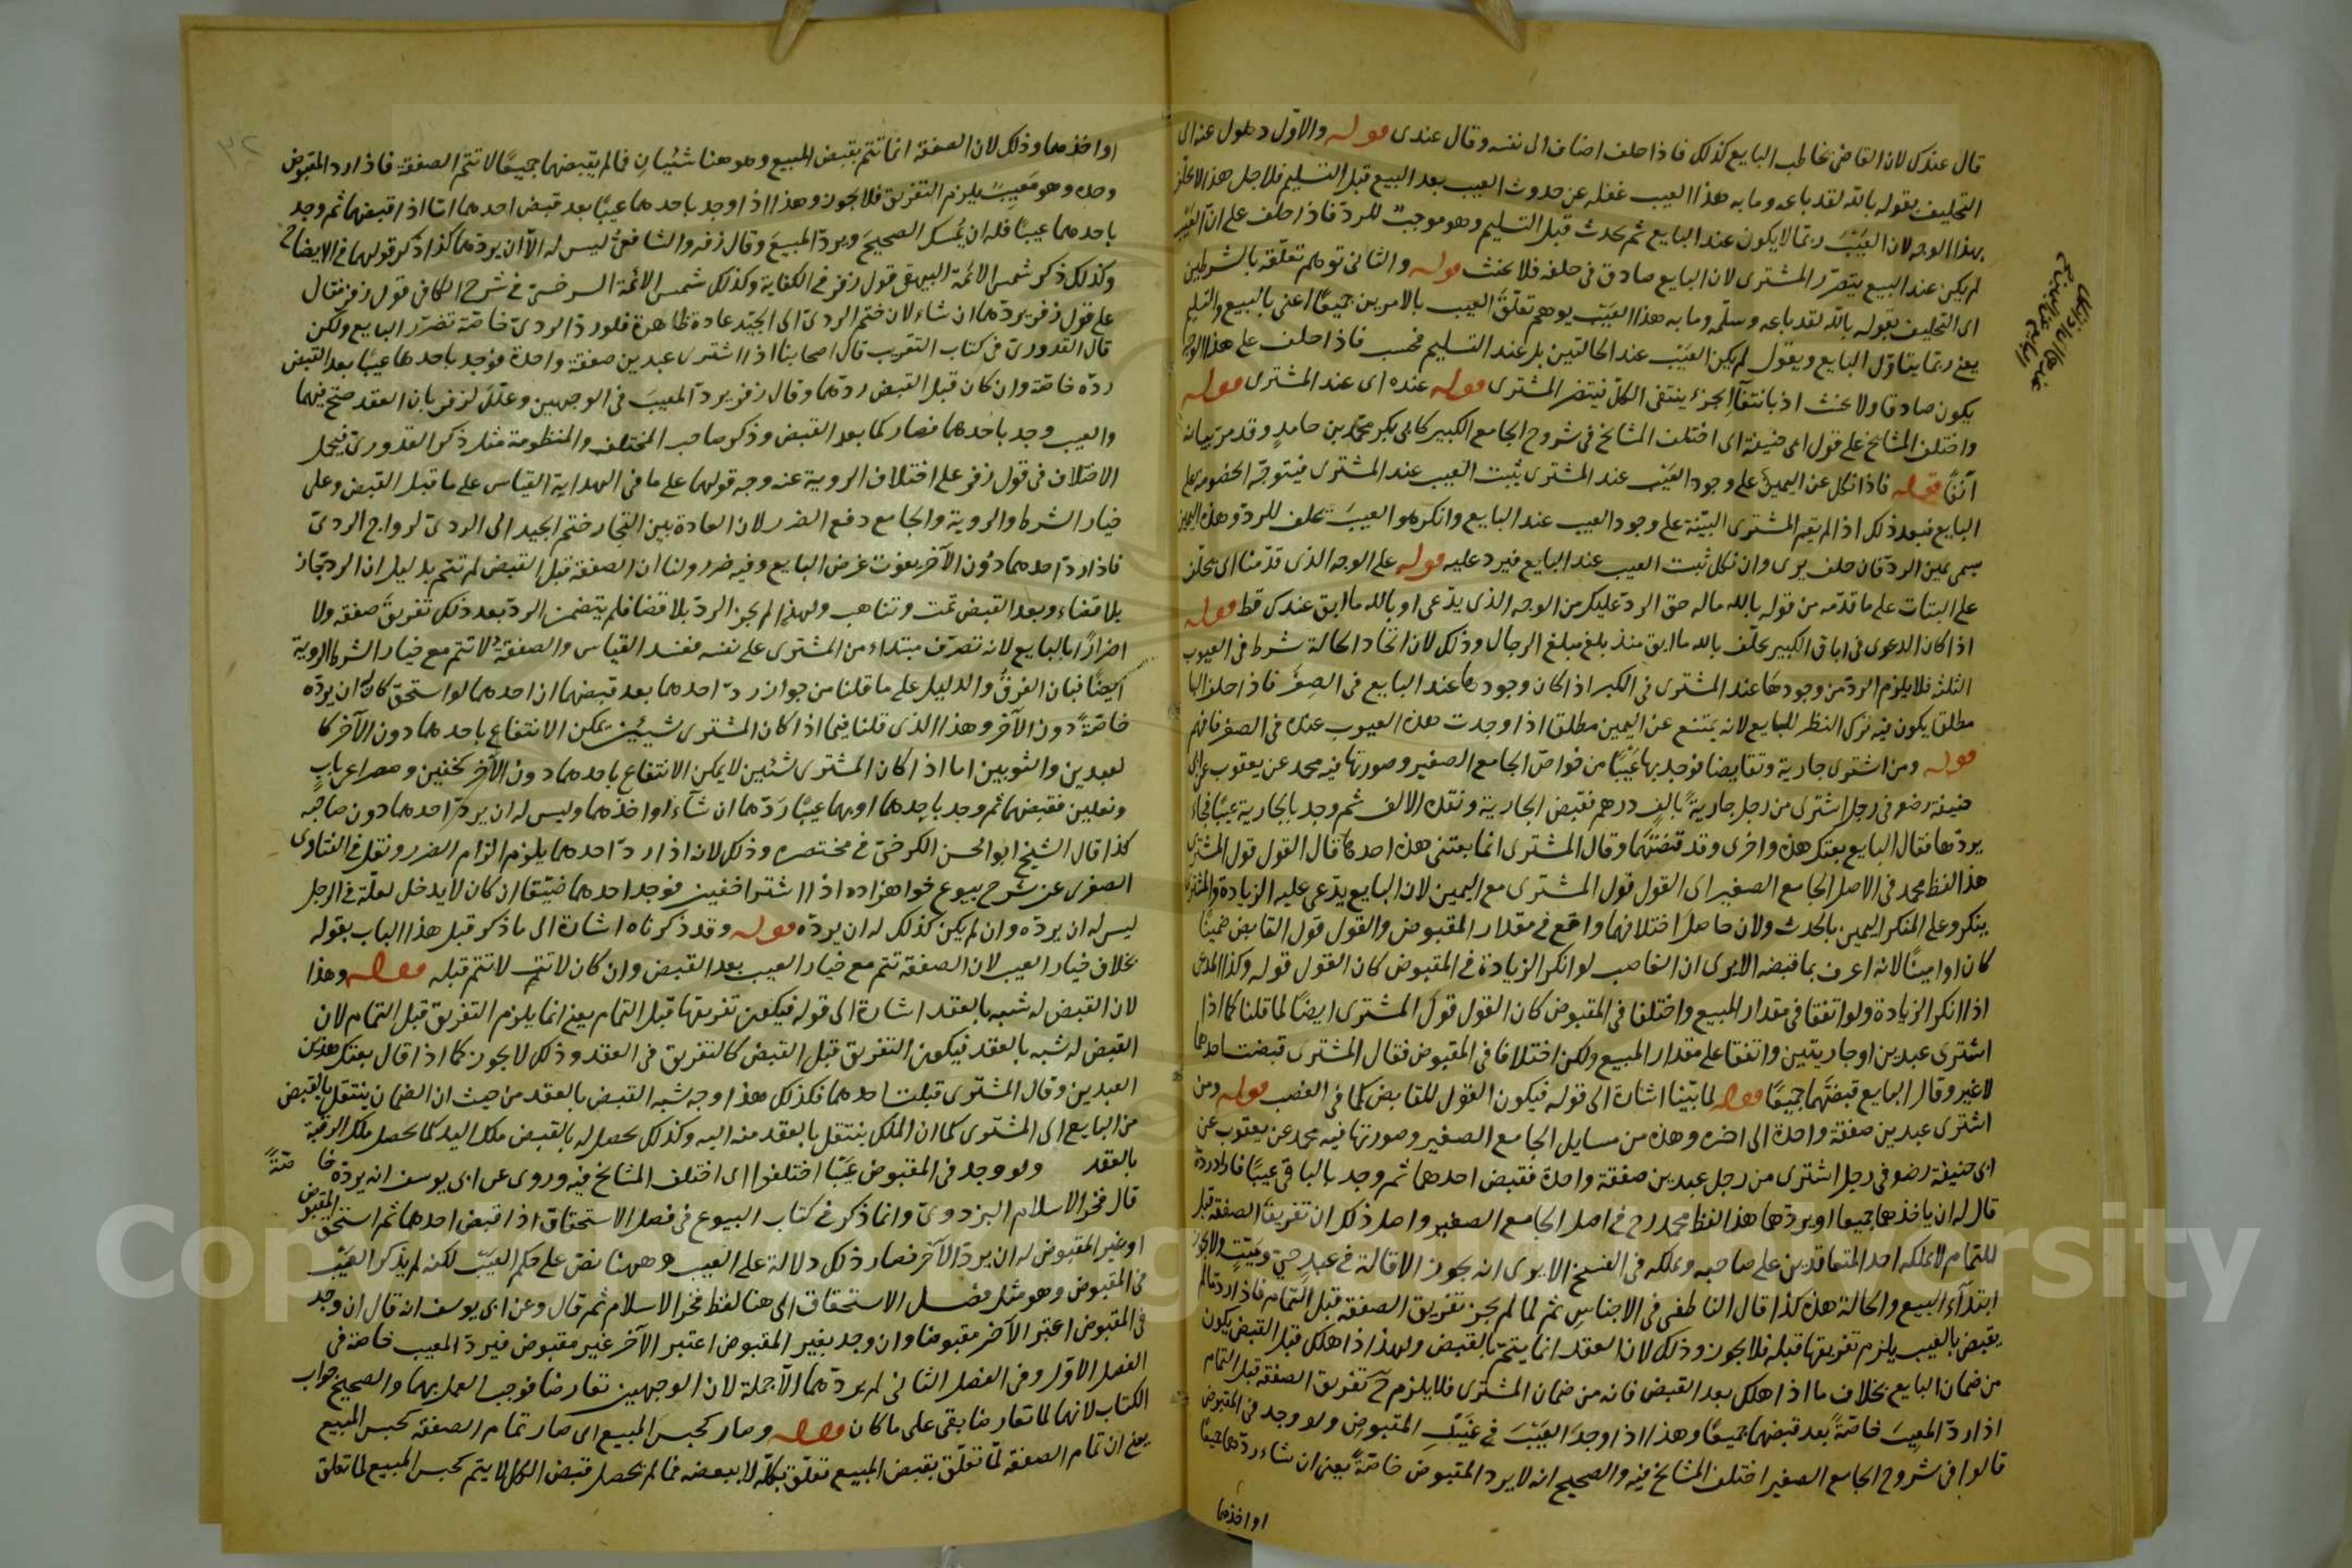 قال عندك لان القاضي يخاطب البايع كذلك فاذا حلف اضاف الى نفسه وقال عندى قوله والاول ذهول عنه اى
التحليف بقوله بالله لقد باعه وما به هذا العيب غفلة عن حدوث العيب بعد البيع قبل التسليم فلاجل هذا لا يحلف
بهذا الوجه لان العيب ربما لا يكون عند البايع ثم يحدث قبل التسليم وهو موجب للرد فاذا حلف على ان العيب
لم يكن عند البيع يتضرر المشترى لان البايع صادق فى حلفه فلا يحنث قوله والثانى توهم تعلقه بالشرطين
اى التحليف بقوله بالله لقد باعه وسلمه وما به هذا العيب يوهم تعلق العيب بالامرين جميعا اعنى بالبيع والتسليم
يعنى ربما يتأول البايع ويقول لم يكن العيب عند الحالتين بل عند التسليم فحسب فاذا حلف على هذا الوجه
يكون صادقا ولا يحنث اذ بانتفاء الجزء ينتفى الكل فيتضرر المشترى قوله عنده اى عند المشترى قوله
واختلف المشايخ على قول ابى حنيفة اى اختلف المشايخ فى شروح الجامع الكبير كابى بكر محمد بن حامد وقد مر بيانه
آنفا قوله فاذا نكل عن اليمين على وجود العيب عند المشترى يثبت العيب عند المشترى فيتوجه الخصومة على
البايع فبعد ذلك اذا لم يقم المشترى البينة على وجود العيب عند البايع وانكر هو العيب يحلف للرد وهذه اليمين
يسمى يمين الرد فان حلف برى وان نكل ثبت العيب عند البايع فيرد عليه قوله على الوجه الذى قدمنا اى يحلف
على البتات على ما قدمه من قوله بالله ماله حق الرد عليك من الوجه الذى يدعى او بالله ما ابق عندك قط قوله
اذا كان الدعوى فى اباق الكبير يحلف بالله ما ابق منذ بلغ مبلغ الرجال وذلك لان اتحاد الحالة شرط فى العيوب
الثلثة فلا يلزم الرد من وجودها عند المشترى فى الكبر اذا كان وجودها عند البايع فى الصغر فاذا حلف البايع
مطلقا يكون فيه ترك النظر للبايع لانه يمتنع عن اليمين مطلقا اذا وجدت هذه العيوب عنده فى الصغر فافهم
قوله ومن اشترى جارية وتقابضا فوجد بها عيبا من خواص الجامع الصغير وصورتها فيه محمد عن يعقوب عن ابى
حنيفة رضو فى رجل اشترى من رجل جارية بالف درهم فقبض الجارية ونقد الالف ثم وجد بالجارية عيبا فجاء
يردها فقال البايع بعتك هذه واخرى وقد قبضتهما وقال المشترى انما بعتنى هذه احدها قال القول قول المشترى
هذا لفظ محمد فى الاصل الجامع الصغير اى القول قول المشترى مع اليمين لان البايع يدعى عليه الزيادة والمشترى
ينكر وعلى المنكر اليمين بالحدث ولان حاصل اختلافهما واقع فى مقدار المقبوض والقول قول القابض ضمينا
كان او امينا لانه اعرف بما قبضه الا يرى ان الغاصب لو انكر الزيادة فى المقبوض كان القول قوله وكذا المدعى
اذا انكر الزيادة ولو اتفقا فى مقدار المبيع واختلفا فى المقبوض كان القول قول المشترى ايضا لما قلنا كما اذا
اشترى عبدين او جاريتين واتفقا على مقدار المبيع ولكن اختلافا فى المقبوض فقال المشترى قبضت احدهما
لا غير وقال البايع قبضتهما جميعا قوله لما بينا اشارة الى قوله فيكون القول للقابض كما فى الغصب قوله ومن
اشترى عبدين صفقة واحدة الى اخره وهذه من مسايل الجامع الصغير وصورتها فيه محمد عن يعقوب عن
ابى حنيفة رضو فى رجل اشترى من رجل عبدين صفقة واحدة فقبض احدهما ثم وجد بالباقى عيبا فاراد رده
قال له ان ياخذهما جميعا او يردهما هذا لفظ محمد رح فى اصل الجامع الصغير واصل ذلك ان تفريق الصفقة قبل
للتمام لا يملكه احد المتعاقدين على صاحبه ويملكه فى الفسخ الا يرى انه يجوز الاقالة فى عبد حى وميت ولا يجوز
ابتداء البيع والحالة هذه كذا قال الناطفى فى الاجناس ثم لما لم يجز تفريق الصفقة قبل التمام فاذا رد ما لم
يقبض بالعيب يلزم تفريقها قبله فلا يجوز وذلك لان العقد انما يتم بالقبض ولهذا اذا هلك قبل القبض يكون
من ضمان البايع بخلاف ما اذا هلك بعد القبض فانه من ضمان المشترى فلا يلزم ح تفريق الصفقة قبل التمام
اذا رد المعيب خاصة بعد قبضهما جميعا وهذا اذا وجد العيب فى غيب المقبوض ولو وجد فى المقبوض
قالوا فى شروح الجامع الصغير اختلف المشايخ فيه والصحيح انه لا يرد المقبوض خاصة يعنى ان شاء ردهما جميعا
او اخذهما
او اخذهما وذلك لان الصفقة انما تتم بقبض المبيع وهو هنا شيئان فما لم يقبضهما جميعا لا تتم الصفقة فاذا رد المقبوض
وحده وهو معيب يلزم التفريق فلا يجوز وهذا اذا وجد باحدهما عيبا بعد قبض احدهما اما اذا قبضهما ثم وجد
باحدهما عيبا فله ان يمسك الصحيح ويرد المبيع وقال زفر والشافعى ليس له الا ان يردهما كذا ذكر قولهما فى الايضاح
وكذلك ذكر شمس الائمة البيهقى قول زفر فى الكفاية وكذلك شمس الائمة السرخسى فى شرح الكافى قول زفر فقال
على قول زفر يردهما ان شاء لان ختم الردى الى الجيد عادة ظاهرة فلو رد الردى خاصة تضرر البايع ولكن
قال القدورى فى كتاب التقريب قال اصحابنا اذا اشترى عبدين صفقة واحدة فوجد باحدهما عيبا بعد القبض
رده خاصة وان كان قبل القبض ردهما وقال زفر يرد المعيب فى الوجهين وعلل لزفر بان العقد صح فيهما
والعيب وجد باحدهما فصار كما بعد القبض وذكر صاحب المختلف والمنظومة مثل ذكر القدورى فيحمل
الاختلاف فى قول زفر على اختلاف الروية عنه وجه قولهما على ما فى الهداية القياس على ما قبل القبض وعلى
خيار الشرط والروية والجامع دفع الضرر لان العادة بين التجار ختم الجيد الى الردى لرواج الردى
فاذا رد احدهما دون الآخر يفوت غرض البايع وفيه ضرر ولنا ان الصفقة قبل القبض لم تتم بدليل ان الرد جاز
بلا قضاء وبعد القبض تمت وتناهب ولهذا لم يجز الرد بلا قضا فلم يتضمن الرد بعد ذلك تفريق صفقة ولا
اضرارا بالبايع لانه تصرف مبتداء من المشترى على نفسه ففسد القياس والصفقة لا تتم مع خيار الشرط والروية
ايضا فبان الفرق والدليل على ما قلنا من جواز رد احدهما بعد قبضهما ان احدهما لو استحق كان له ان يرده
خاصة دون الآخر وهذا الذى قلنا فيما اذا كان المشترى شيئين يمكن الانتفاع باحدهما دون الآخر كا
لعبدين والثوبين اما اذا كان المشترى شئين لا يمكن الانتفاع باحدهما دون الآخر كخفين ومصراعى باب
ونعلين فقبضهما ثم وجد باحدهما او بهما عيبا ردهما ان شاء او اخذهما وليس له ان يرد احدهما دون صاحبه
كذا قال الشيخ ابو الحسن الكرخى فى مختصره وذلك لانه اذا رد احدهما يلزم الزام الضرر ونقل فى الفتاوى
الصغرى عن شرح بيوع خواهر زاده اذا اشترا خفين فوجد احدهما ضيقا ان كان لا يدخل لعلة فى الرجل
ليس له ان يرده وان لم يكن كذلك له ان يرده قوله وقد ذكرناه اشارة الى ما ذكر قبل هذا الباب بقوله
بخلاف خيار العيب لان الصفقة تتم مع خيار العيب بعد القبض وان كان لا تتم قبله قوله وهذا
لان القبض له شبه بالعقد اشارة الى قوله فيكون تفريقها قبل التمام يعنى انما يلزم التفريق قبل التمام لان
القبض له شبه بالعقد فيكون التفريق قبل القبض كالتفريق فى العقد وذلك لا يجوز كما اذا قال بعتك هذين
العبدين وقال المشترى قبلت احدهما فكذلك هذا وجه شبه القبض بالعقد من حيث ان الضمان ينتقل بالقبض
من البايع الى المشترى كما ان الملك ينتقل بالعقد منه اليه وكذلك يحصل له بالقبض ملك اليد كما يحصل ملك الرقبة
بالعقد ولو وجد فى المقبوض عيبا اختلفوا اى اختلف المشايخ فيه وروى عن ابى يوسف انه يرده خاصة
قال فخر الاسلام البزدوى وانما ذكر فى كتاب البيوع فى فصل الاستحقاق اذا قبض احدهما ثم استحق المقبوض
او غير المقبوض له ان يرد الآخر فصار ذلك دلالة على العيب وههنا نص على حكم العيب لكنه لم يذكر العيب
فى المقبوض وهو مثل فصل الاستحقاق الى هنا لفظ فخر الاسلام ثم قال وعن ابى يوسف انه قال ان وجد
فى المقبوض اعتبر الآخر مقبوضا وان وجد بغير المقبوض اعتبر الآخر غير مقبوض فيرد المعيب خاصة فى
الفصل الاول وفى الفصل الثانى لم يردهما الا جملة لان الوجهين تعارضا فوجب العمل بهما والصحيح جواب
الكتاب لانهما لما تعارضا بقى على ما كان قوله وصار كحبس المبيع اى صار تمام الصفقة كحبس المبيع
يعنى ان تمام الصفقة لما تعلق بقبض المبيع تعلق بكله لا ببعضه فما لم يحصل قبض الكل لا يتم كحبس المبيع لما تعلق
Copyright © King Saud University